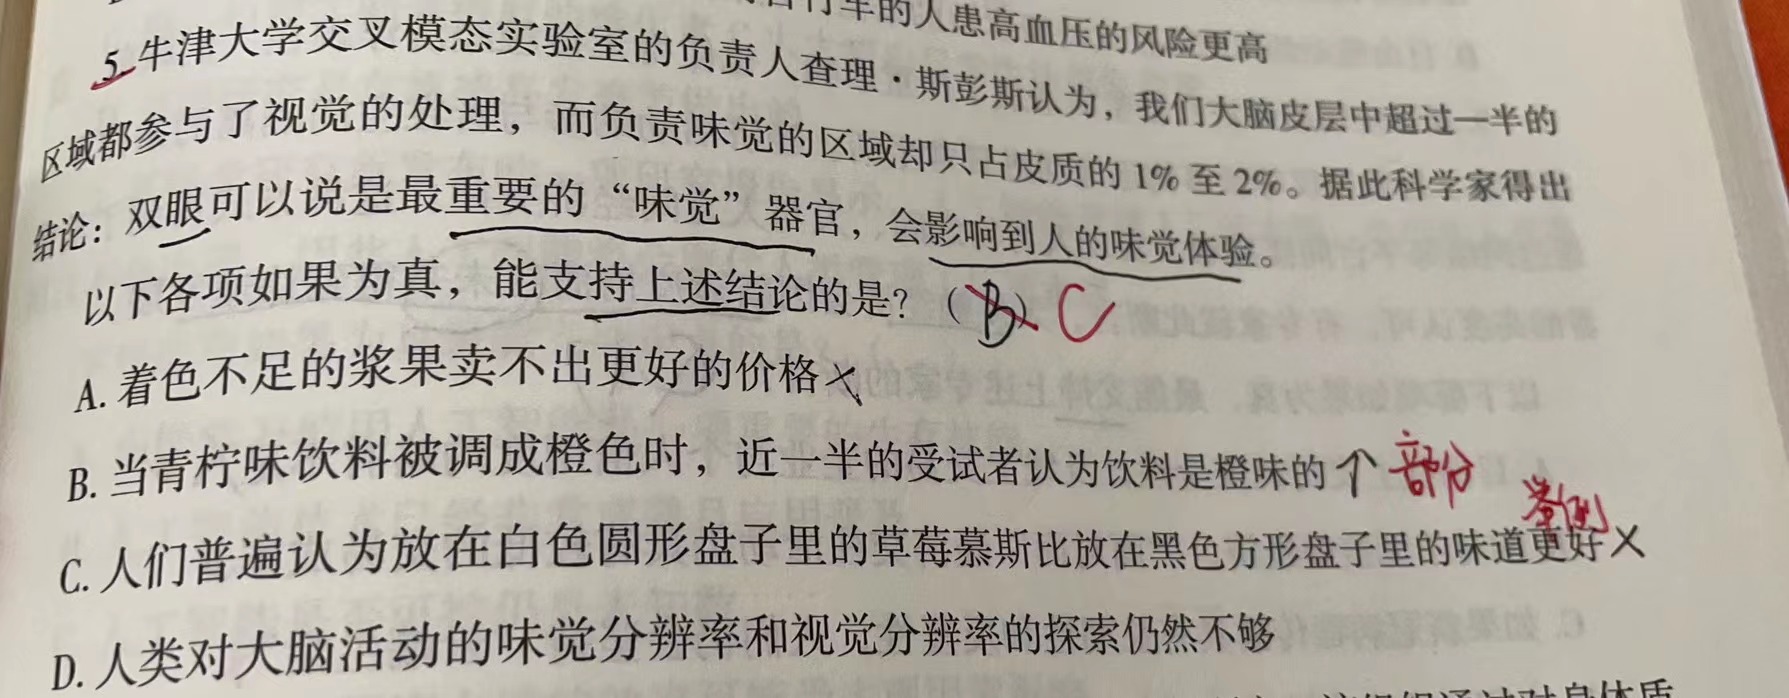 的人患高血压的风险更高
5. 牛津大学交叉模态实验室的负责人查理·斯彭斯认为，我们大脑皮层中超过一半的
区域都参与了视觉的处理，而负责味觉的区域却只占皮质的1%至2%。据此科学家得出
结论：双眼可以说是最重要的“味觉”器官，会影响到人的味觉体验。
以下各项如果为真，能支持上述结论的是？（B）C
A. 着色不足的浆果卖不出更好的价格×
B. 当青柠味饮料被调成橙色时，近一半的受试者认为饮料是橙味的个 部分
举例
C. 人们普遍认为放在白色圆形盘子里的草莓慕斯比放在黑色方形盘子里的味道更好×
D. 人类对大脑活动的味觉分辨率和视觉分辨率的探索仍然不够